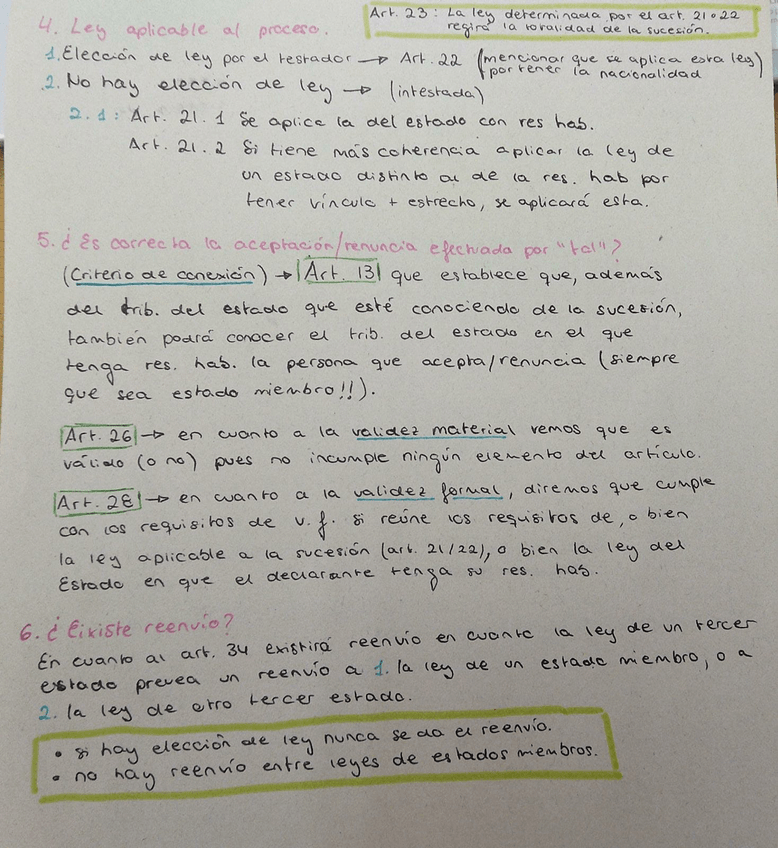 4. Ley aplicable al proceso.
Art. 23: La ley determinada por el art. 21 o 22
regirá la totalidad de la sucesión.
1. Elección de ley por el testador → Art. 22 (mencionar que se aplica esta ley)
(por tener la nacionalidad
2. No hay elección de ley → (intestada)
2.1: Art. 21.1 Se aplica la del estado con res hab.
Art. 21.2 Si tiene más coherencia aplicar la ley de
un estado distinto al de la res. hab por
tener vínculo + estrecho, se aplicará esta.
5. ¿Es correcta la aceptación/renuncia efectuada por "tal"?
(Criterio de conexión) → Art. 13 que establece que, además
del trib. del estado que esté conociendo de la sucesión,
también podrá conocer el trib. del estado en el que
tenga res. hab. la persona que acepta/renuncia (siempre
que sea estado miembro!!).
Art. 26 → en cuanto a la validez material vemos que es
válido (o no) pues no incumple ningún elemento del artículo.
Art. 28 → en cuanto a la validez formal, diremos que cumple
con los requisitos de v.f. si reúne los requisitos de, o bien
la ley aplicable a la sucesión (art. 21/22), o bien la ley del
Estado en que el declarante tenga su res. hab.
6. ¿Existe reenvío?
En cuanto al art. 34 existirá reenvío en cuanto la ley de un tercer
estado prevea un reenvío a 1. la ley de un estado miembro, o a
2. la ley de otro tercer estado.
• si hay elección de ley nunca se da el reenvío.
• no hay reenvío entre leyes de estados miembros.